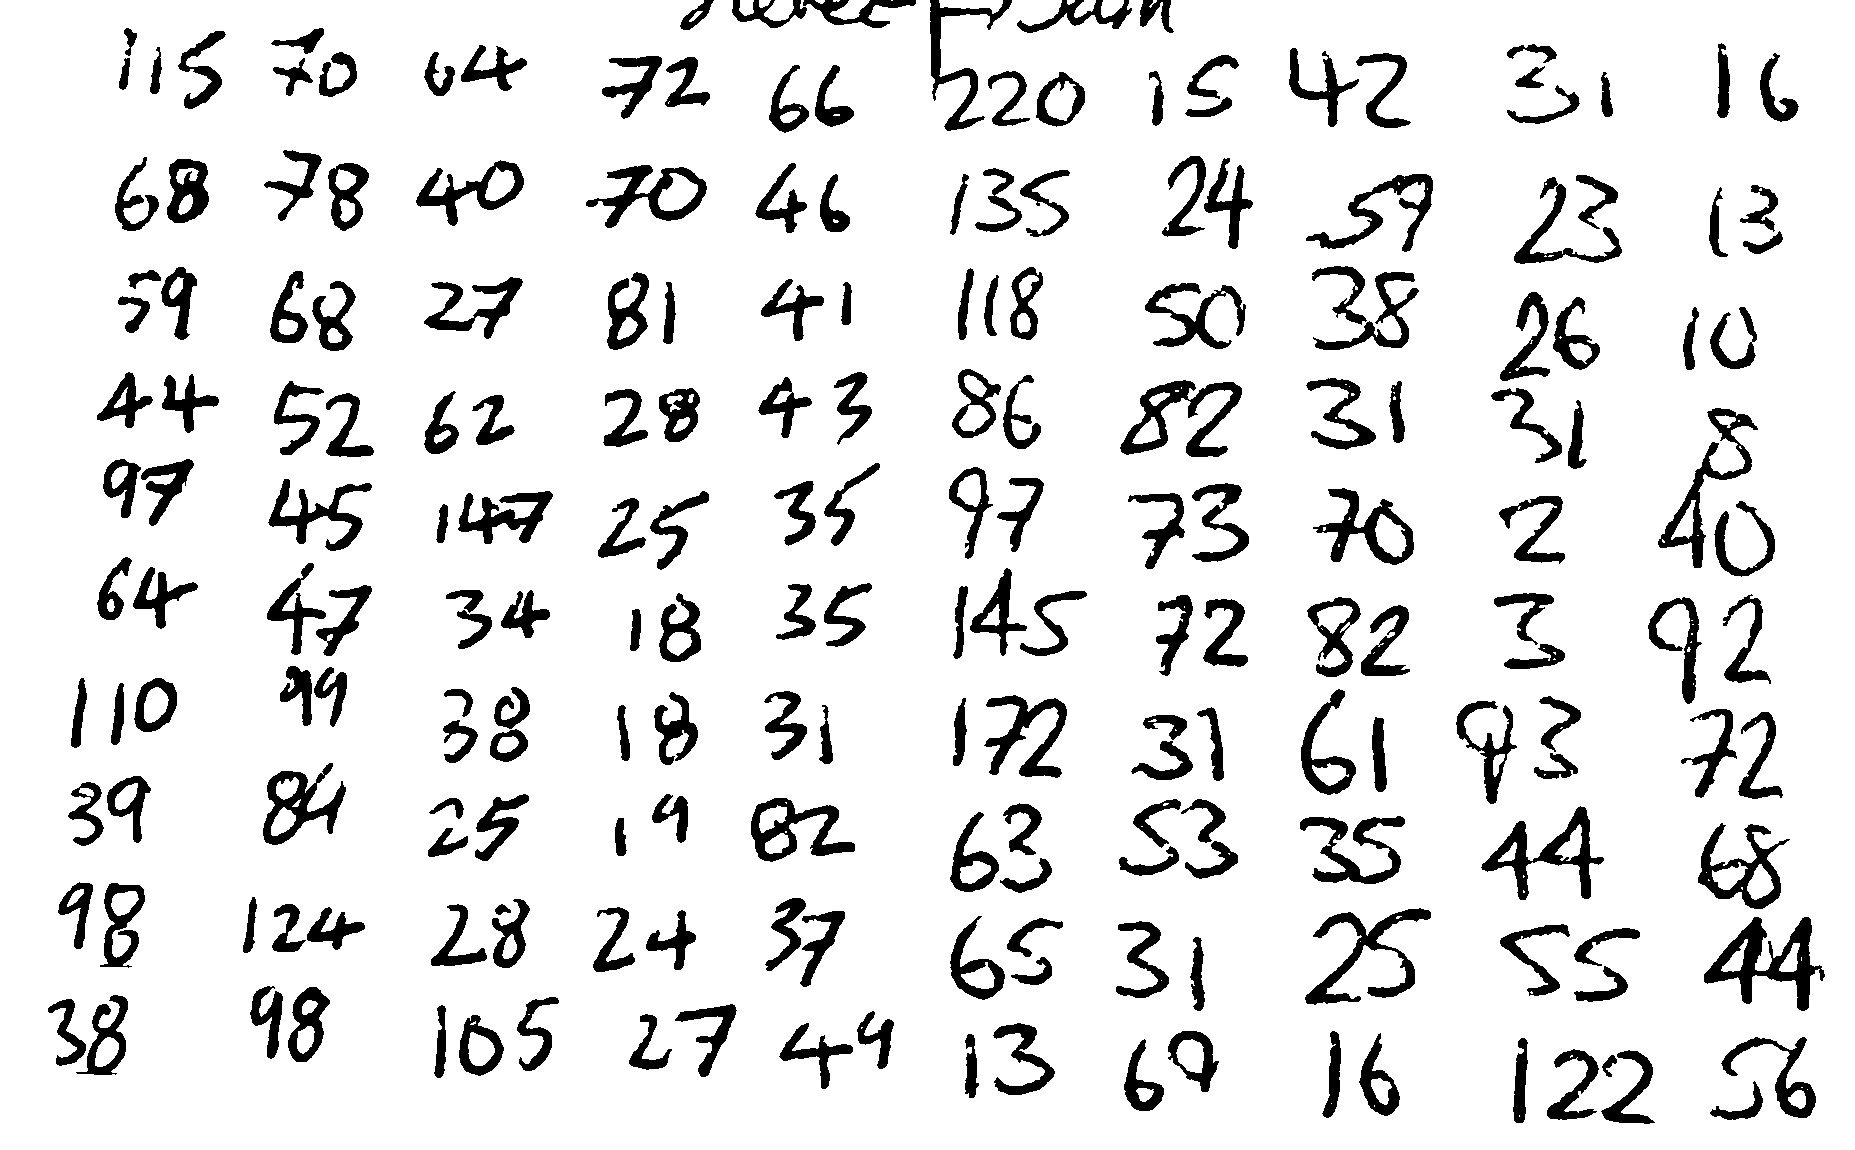 115 70 64 72 66 220 15 42 31 16
68 78 40 70 46 135 24 59 23 13
59 68 27 81 41 118 50 38 26 10
44 52 62 28 43 86 82 31 31 8
97 45 147 25 35 97 73 70 2 40
64 47 34 18 35 145 72 82 3 92
110 99 38 18 31 172 31 61 93 72
39 84 25 19 82 63 53 35 44 68
98 124 28 24 37 65 31 25 55 44
38 98 105 27 49 13 69 16 122 56